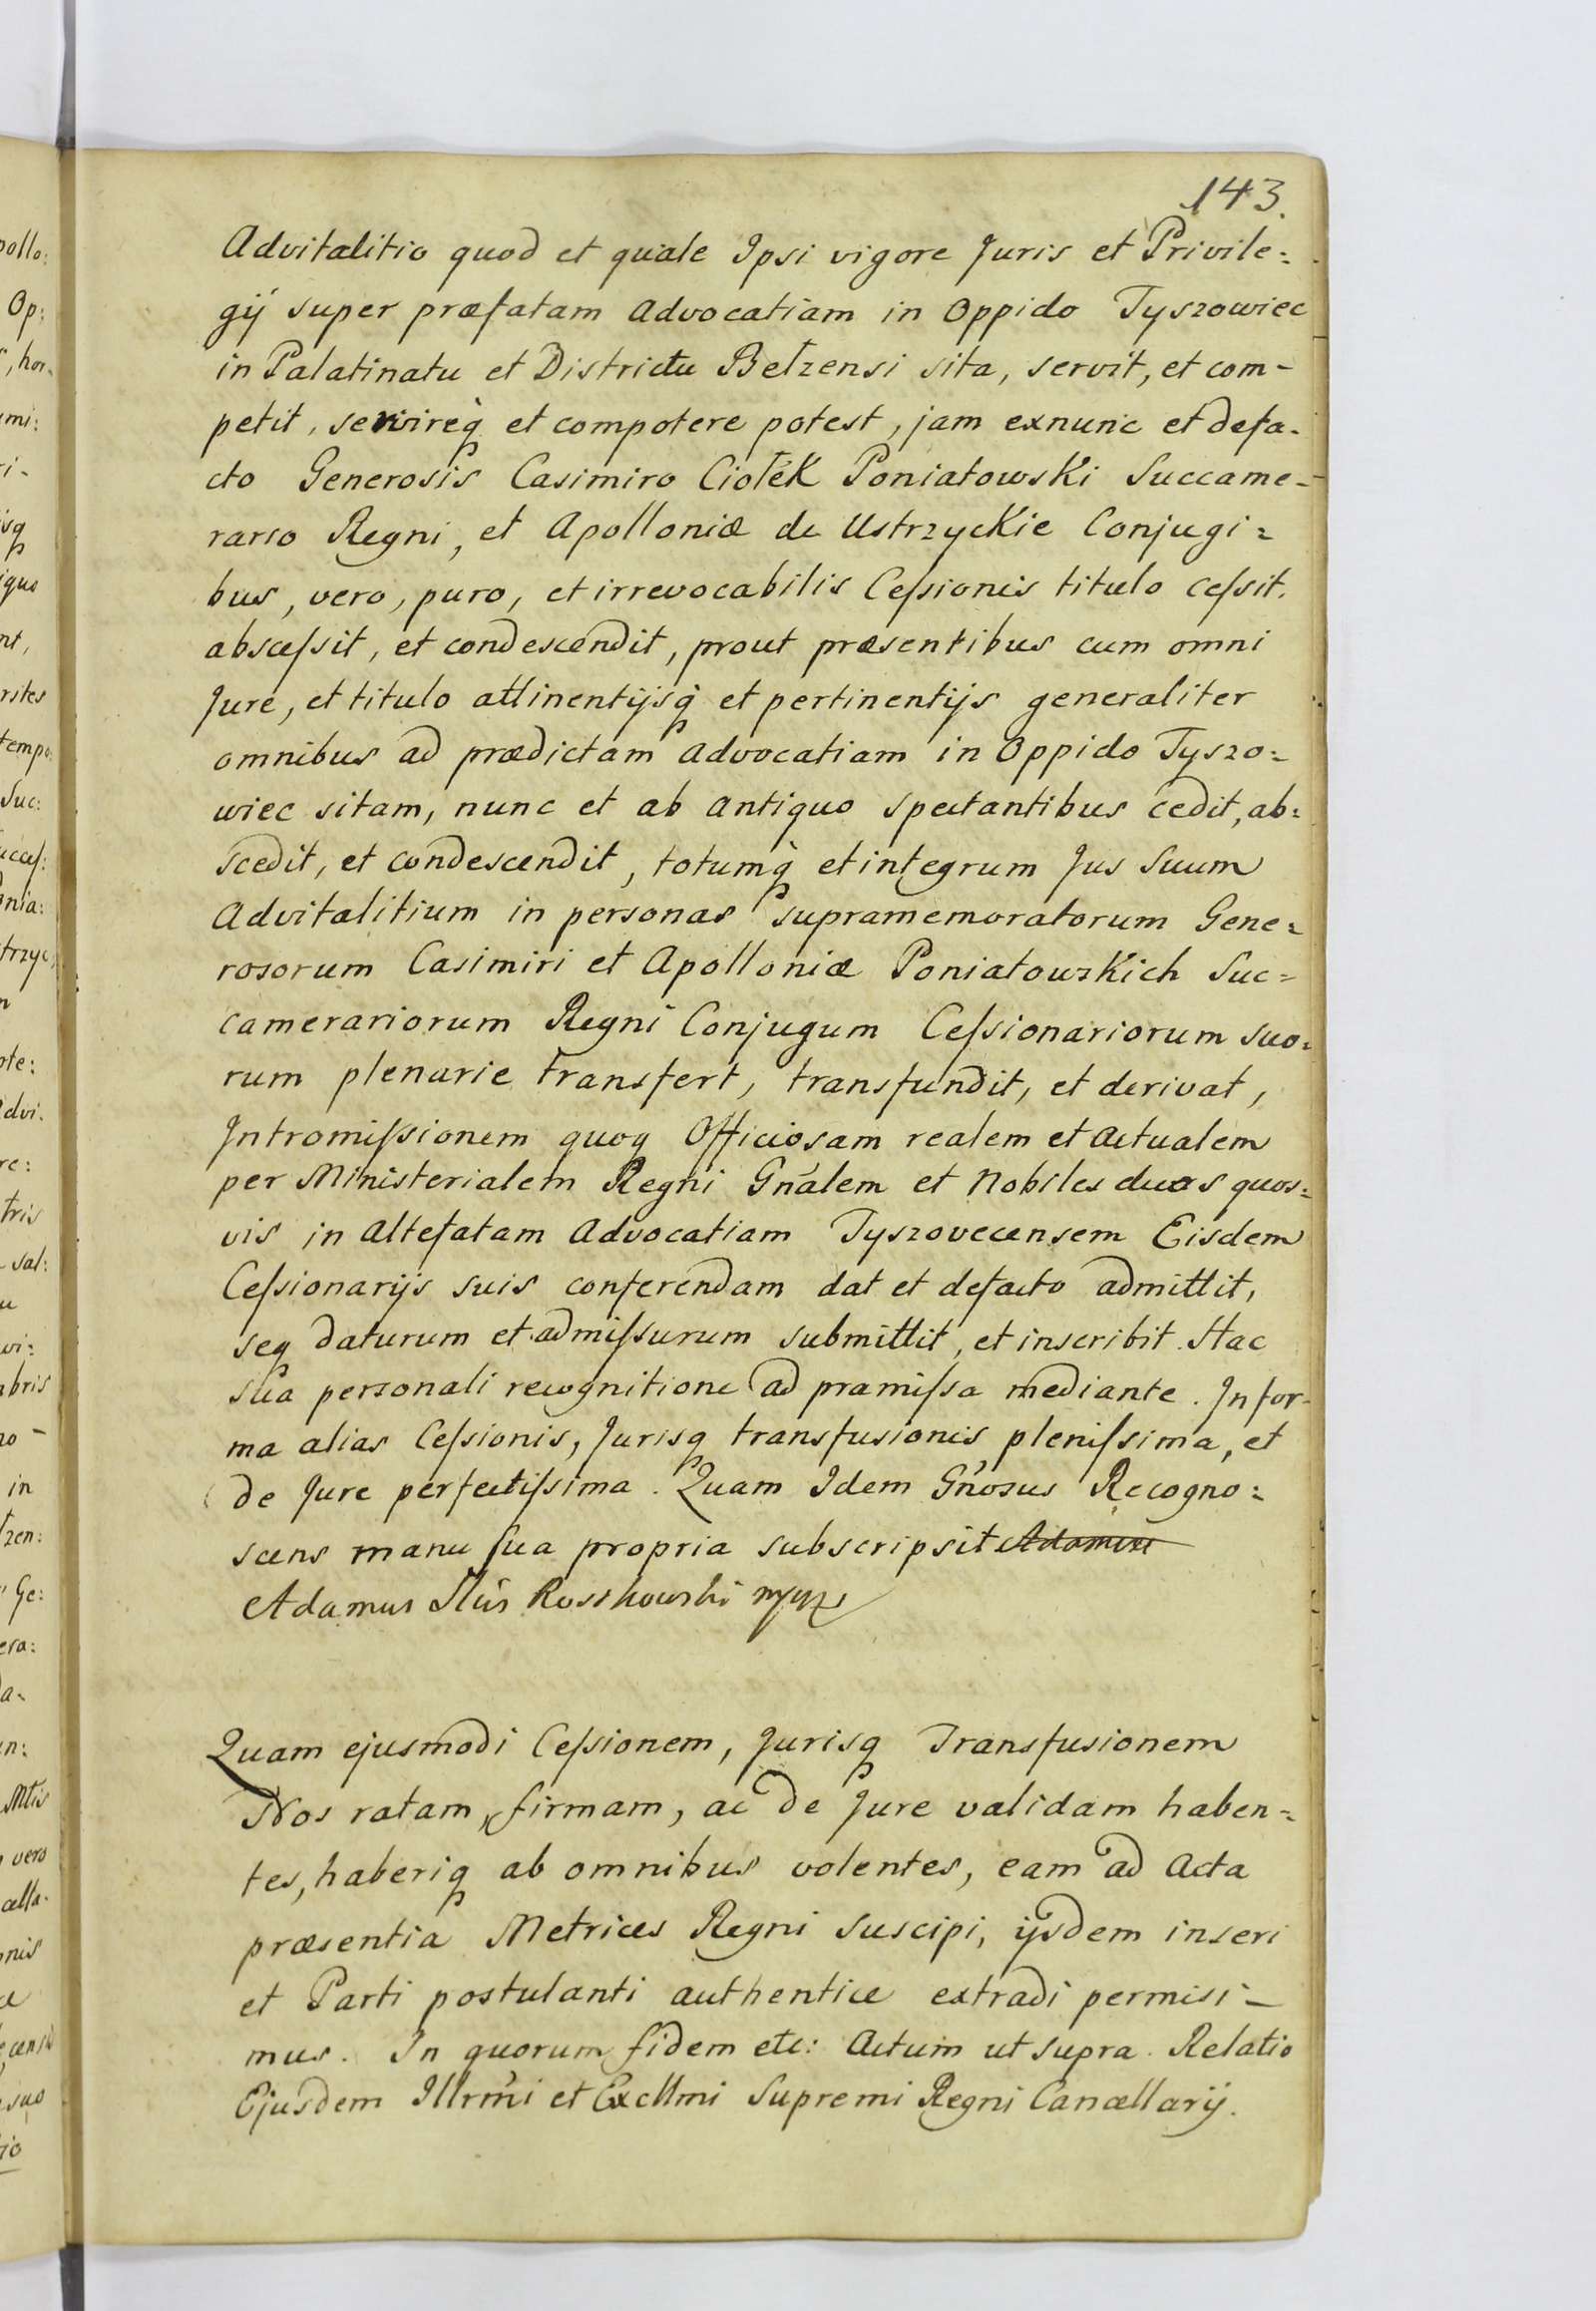 143.
Advitalitio quod et quale Ipsi vigore Juris et Privile:
gij super præfatam Advocatiam in Oppido Tyszowiec
in Palatinatu et Districtu Bełzensi sita, servit, et com-
petit, servireq̀ et compotere potest, jam exnunc et defa-
cto Generosis Casimiro Ciołek Poniatowski Succame-
rario Regni, et Apolloniæ de Ustrzyckie Conjugi:
bus, vero, puro, et irrevocabilis Ceſsionis titulo ceſsit.
absceſsit, et condescendit, prout præsentibus cum omni
Jure, et titulo attinentijsq̀ et pertinentijs generaliter
omnibus ad prædictam Advocatiam in Oppido Tyszo:
wiec sitam, nunc et ab antiquo spectantibus cedit, ab:
scedit, et condescendit, totumq̀ et integrum Jus Suum
Advitalitium in personas supramemoratorum Gene:
rosorum Casimiri et Apolloniæ Poniatowskich Suc=
camerariorum Regni Conjugum Ceſsionariorum suo:
rum plenarie transfert, transfundit, et derivat,
Intromiſsionem quoq Officiosam realem et actualem
per Ministerialem Regni Gnãlem et Nobiles duos quos:
vis in Altefatam Advocatiam Tyszovecensem Eisdem
Ceſsionarijs suis conferendam dat et defacto admittit,
seq daturum et admiſsurum submittit, et inscribit. Hac
sua personali recognitione ad pramiſsa mediante. In for-
ma alias Ceſsionis, Jurisq transfusionis pleniſsima, et
de Jure perfectiſsima. Quam Idem Gnosus Recogno:
scens manu sua propria subscripsit
Adamus Mus Kosskowski mpp
Quam ejusmodi Ceſsionem, Jurisq Transfusionem
Nos ratam, firmam, ac de Jure validam haben=
tes, haberiq ab omnibus volentes, eam ad Acta
præsentia Metrices Regni suscipi, ijsdem inseri
et Parti postulanti authentice extradi permisi-
mus. In quorum fidem etc: Actum ut supra. Relatio
Ejusdem Illrmi et Excllmi Supremi Regni Cancellarij.